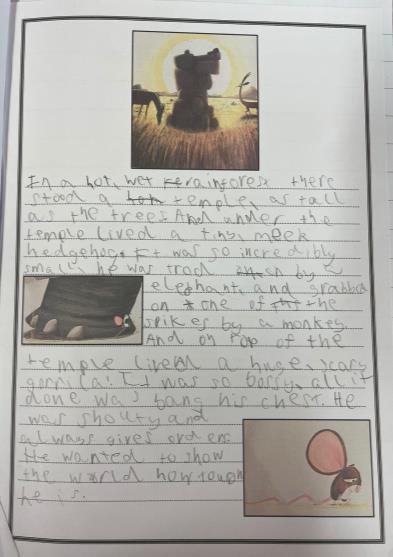 In a hot, wet rainforest there
stood a temple, as tall
as the trees. And under the
temple lived a tiny, meek
hedgehog. It was so incredibly
small, he was trod on by a
elephant, and grabbd
on one of the
spikes by a monkey.
And on top of the
temple lived a huge, scary
gorrila. It was so bossy, all it
done was bang his chest. He
was shouty and
always gives orders.
He wanted to show
the world how tough
he is.